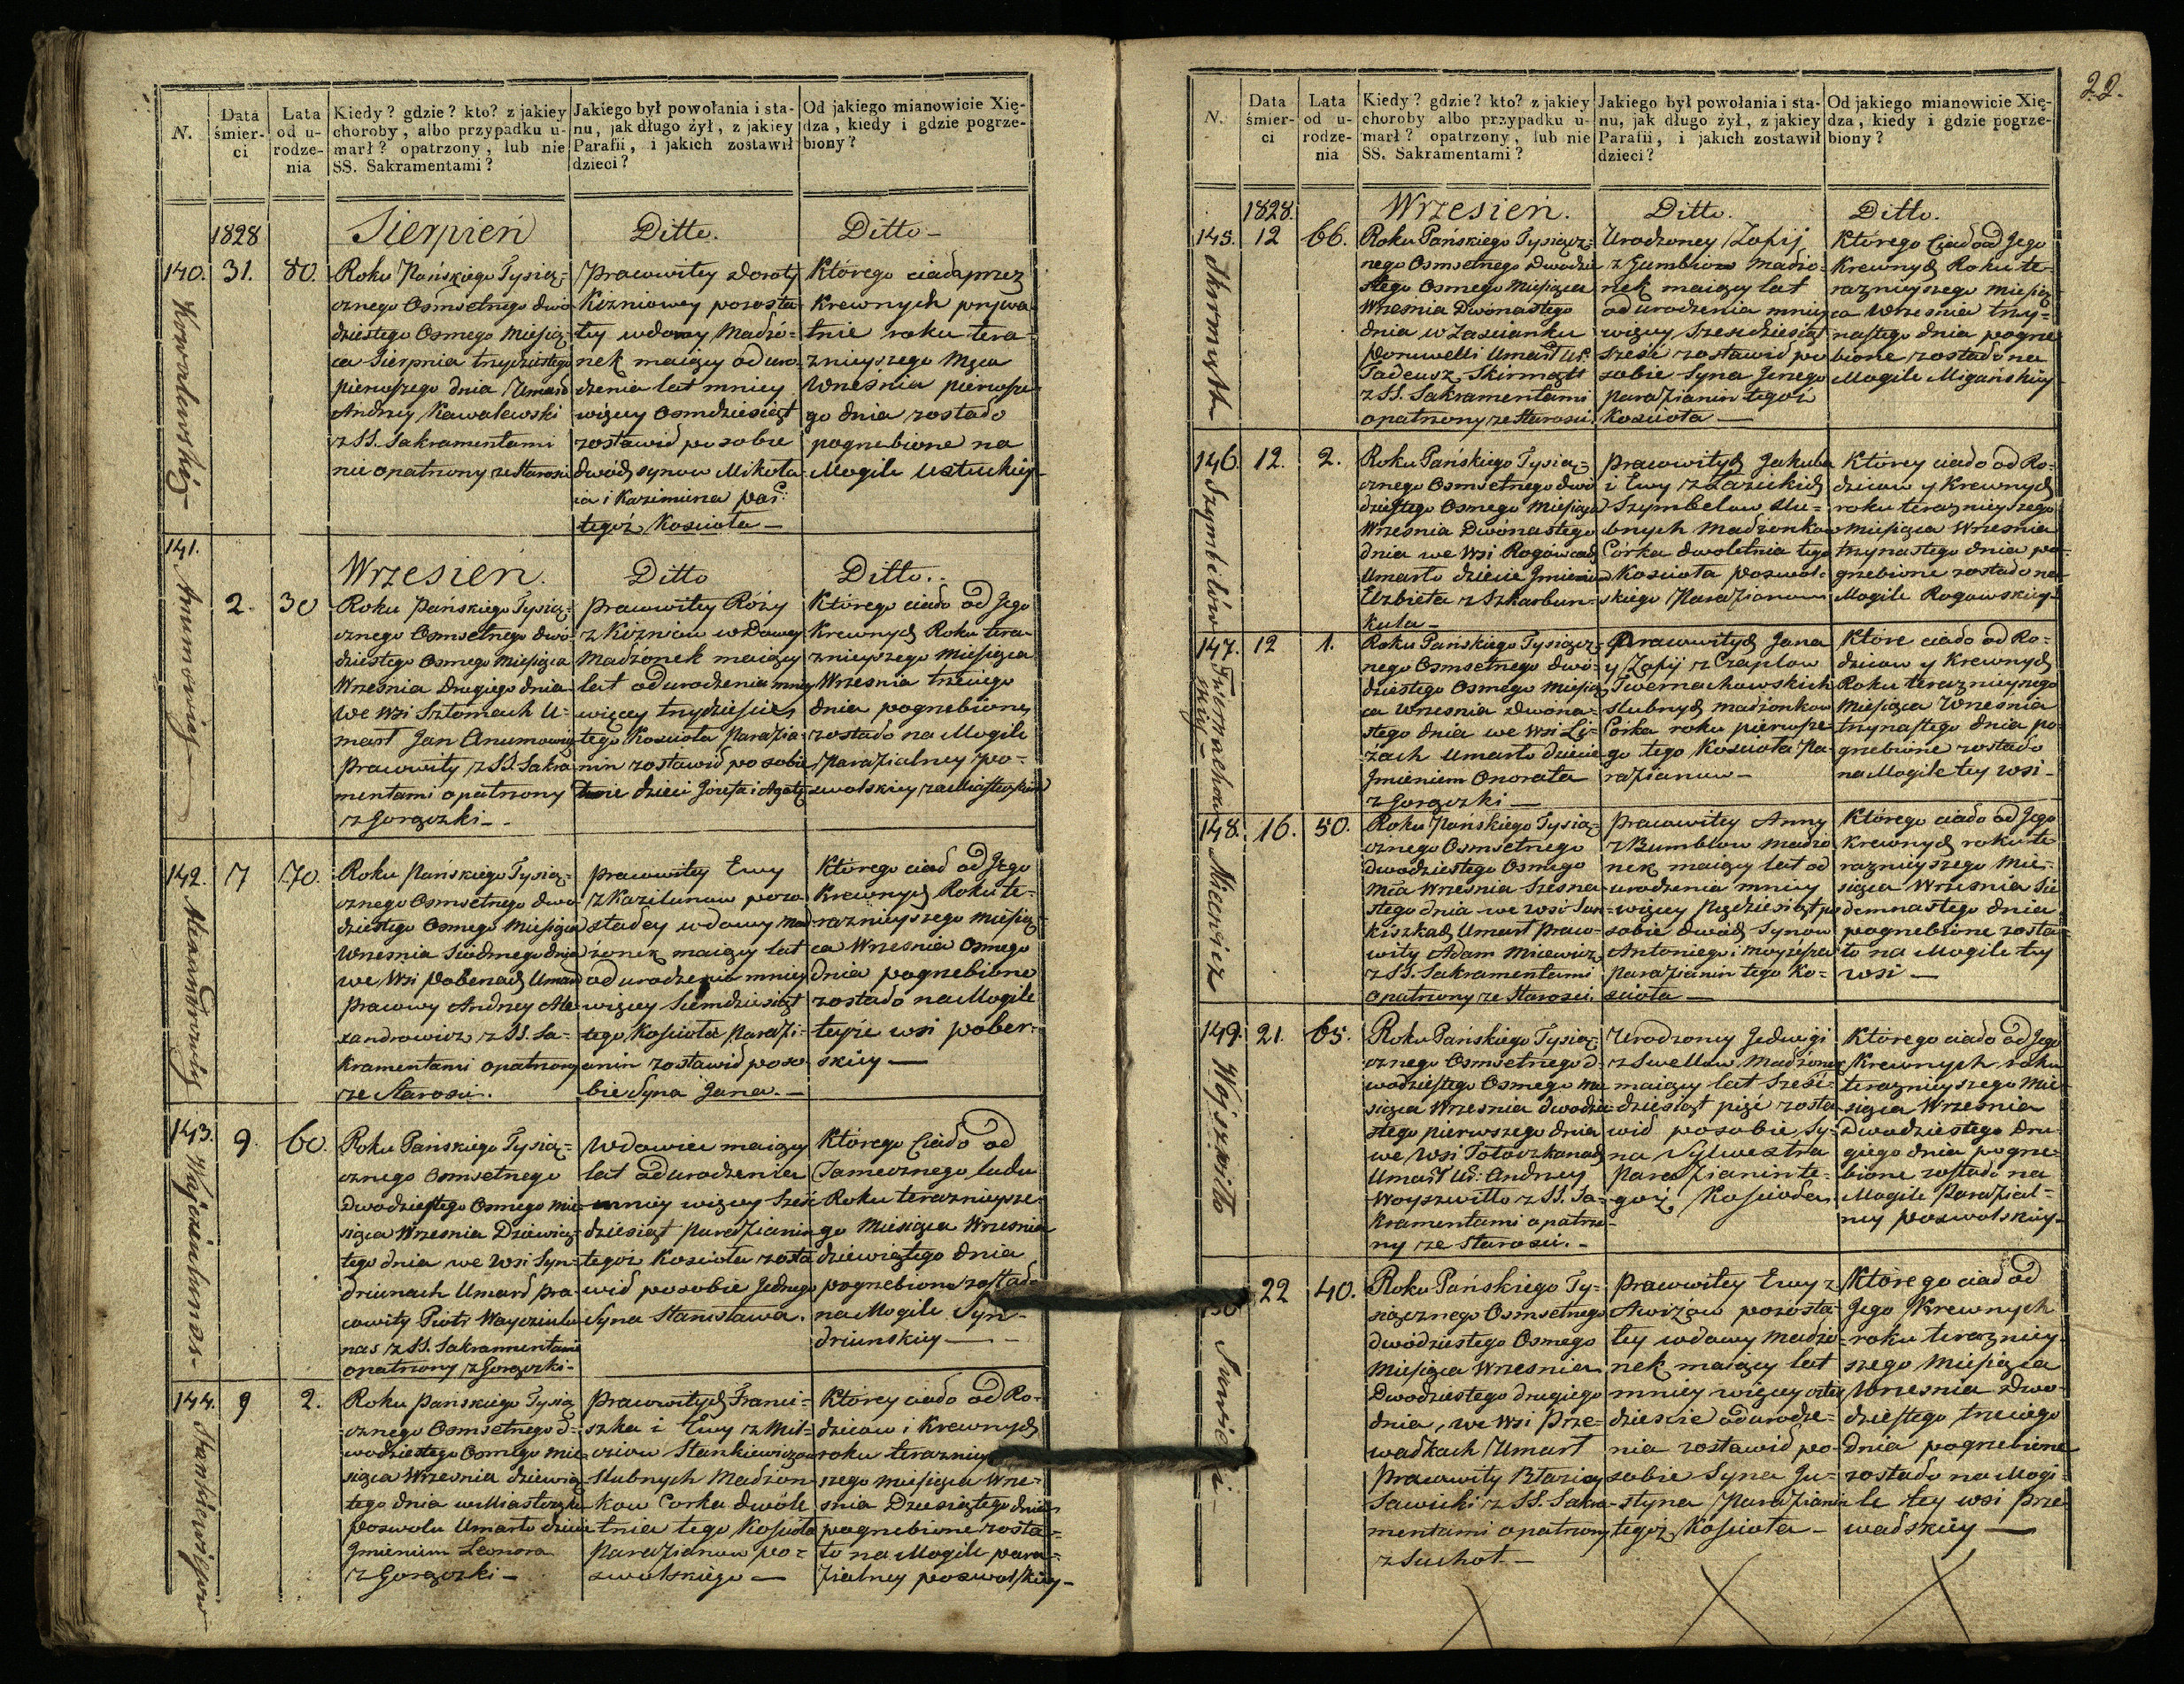 N.
Data
śmier-
ci
Lata
od u-
rodze-
nia
Kiedy? gdzie? kto? z jakiey
choroby, albo przypadku u-
marł? opatrzony, lub nie
SS. Sakramentami?
Jakiego był powołania i sta-
nu, jak długo żył, z jakiey
Parafii, i jakich zostawił
dzieci?
Od jakiego mianowicie Xię-
dza, kiedy i gdzie pogrze-
biony?
1828
Sierpień
Ditto.
Ditto-
140.
31.
80.
Roku Pańskiego Tysią-
cznego Osmsetnego dwó-
dziestego Osmego Miesią-
ca Sierpnia trzydziestego
pierwszego dnia Umarł
Andrzey Kawalewski
z SS. Sakramentami
nie opatrzony ze starosci
Pracowitey Doroty
Kiżniowey pozosta-
łey wdowy Małżo-
nek maiący od uro-
dzenia lat mniey
więcey Osmdziesiąt
zostawił po sobie
dwóch synow Mikoła-
ia i Kazimierza par:
tegoż Kosciola —
Którego ciało przez
Krewnych prywa-
tnie roku tera-
znieyszego Mca
Wrzesnia pierwsze-
go dnia zostało
pogrzebione na
Mogile
141.
Wrzesień.
Ditto
Ditto.-
2.
30
Roku Pańskiego Tysią-
cznego Osmsetnego dwó-
dziestego Osmego Miesiąca
Wrzesnia Drugiego dnia
We Wsi Sztomach U-
marł Jan Anumowicz
Pracowity z SS. Sakra-
mentami opatrzony
z Gorączki -
Pracowitey Róży
z Kiżniow wdowey
Małżonek maiący
lat od urodzenia mniey
więcey trzydziesci
tego Kosciola Parafia-
nin zostawił po sobie
dzieci Jozefa i Agatę
Którego ciało od Jego
Krewnych Roku tera-
znieyszego Miesiąca
Wrzesnia trzeciego
dnia pogrzebiony
zostało na Mogile
Parafialney Po-
szwolskiey
142.
7
70.
Roku Pańskiego Tysią-
cznego Osmsetnego dwo-
dziestego Osmego Miesiąca
Wrzesnia Siódmego dnia
we Wsi Poberzach Umarł
Pracowy Andrzey Ale-
xandrowicz z SS. Sa-
kramentami opatrzony
ze Starosci.
Pracowitey Ewy
z Kazilunow pozo-
stałey wdowy Mał-
żonek maiący lat
od urodzenia mniey
więcey Siemdziesiąt
tego Kosciola Parafi-
anin zostawił po so-
bie Syna Jana. —
Którego ciało od Jego
Krewnych Roku te-
raznieyszego Miesią-
ca Wrzesnia Osmego
dnia pogrzebione
zostało na Mogile
teyże wsi Pober-
skiey —
143.
9.
60.
Roku Pańskiego Tysią-
cznego Osmsetnego
Dwodziestego Osmego Mie-
siąca Wrzesnia Dziewią-
tego dnia we Wsi Syn-
driunach Umarł Pra-
cowity Piotr Wayciulu-
nas z SS. Sakramentami
opatrzony z Gorączki-
Wdowiec maiący
lat od urodzenia
mniey więcey Sześ-
dziesiąt Parafianin
tegoż Kosciola zosta-
wił po sobie Jednego
Syna Stanisława.
Którego Ciało od
Tamecznego ludu
Roku teraznieysze-
go Miesiąca Wrzesnia
dziewiątego dnia
pogrzebione zostało
na Mogile Syn-
driunskiey —
144.
9
2.
Roku Pańskiego Tysią-
cznego Osmsetnego d-
wodziestego Osmego Mie-
siąca Wrzesnia dziewią-
tego dnia w Miasteczku
Poszwolu Umarło dziecie
Jmieniem Leonora
z Gorączki —
Pracowitych Franci-
szka i Ewy z Mil-
Stankiewiczow
slubnych Małżon-
kow Corka dwóle-
tnia tego Kosciola
Parafianow Po-
szwolskiego —
Którey ciało od Ro-
dzicow i Krewnych
roku teraznie
szego miesiąca Wrze-
snia Dziesiątego dnia
pogrzebione zosta-
ło na Mogile para-
fialney poszwolskiey-
Anumowicz
Alexandrowicz
Stankiewiczow
22.
N.
Data
śmier-
ci
Lata
od u-
rodze-
nia
Kiedy? gdzie? kto? z jakiey
choroby albo przypadku u-
marł? opatrzony, lub nie
SS. Sakramentami?
Jakiego był powołania i sta-
nu, jak długo żył, z jakiey
Parafii, i jakich zostawił
dzieci?
Od jakiego mianowicie Xię-
dza, kiedy i gdzie pogrze-
biony?
1828.
Wrzesień.
Ditto.
Ditto.
145.
12
66.
Roku Pańskiego Tysiącz-
nego Osmsetnego Dwodzie-
stego Osmego Miesiąca
Wrzesnia Dwónastego
dnia w Zascianku
Poruwelli Umarł Ur.
Tadeusz Skirmątt
z SS. Sakramentami
opatrzony ze Starosci.
Urodzoney Zofij
z Gumbiow Małżo-
nek maiący lat
od urodzenia mniey
więcey Szescdziesiąt
sześć zostawił po
sobie Syna Jenego
Parafianin tegoż
Kosciola —
Którego Ciało od Jego
Krewnych Roku te-
raznieyszego Miesią-
ca Wrzesnia trzy-
nastego dnia pogrze-
bione zostało na
Mogile Migańskiey
146.
12.
2.
Roku Pańskiego Tysią-
cznego Osmsetnego dwó-
dziestego Osmego Miesiąca
Wrzesnia Dwónastego
dnia we Wsi Rogowiach
Umarło dziecie Jmieniem
Elzbieta z Szkarbun-
kula —
Pracowitych Jakuba
i Ewy z Łazickich
Szymbelow Slu-
bnych Małżonkow
Córka dwoletnia tego
Kosciola Poszwol-
skiego Parafianow
Którey ciało od Ro-
dzicow y Krewnych
roku teraznieyszego
Miesiąca Wrzesnia
trzynastego dnia po-
grzebione zostało na
Mogile Rogowskiey
147.
12
1.
Roku Pańskiego Tysiącz-
nego Osmsetnego dwó-
dziestego Osmego Miesią-
ca Wrzesnia Dwona-
stego dnia we Wsi Ły-
żach Umarło dziecie
Jmieniem Onorata
z Gorączki —
Pracowitych Jana
y Zofij z Czaplow
Twernachowskich
slubnych małżonkow
Corka roku pierwsze-
go tego Kosciola Pa-
rafianow —
Które ciało od Ro-
dzicow y Krewnych
Roku teraznieyszego
Miesiąca Wrzesnia
trzynastego dnia po-
grzebione zostało
na Mogile tey wsi -
148.
16.
50.
Roku Pańskiego Tysią-
cznego Osmsetnego
dwodziestego Osmego
Mca Wrzesnia Szesna-
stego dnia we wsi Jan-
kiszkach Umarł Praco-
wity Adam Micewicz
z SS. Sakramentami
opatrzony ze Starosci.
Pracowitey Anny
z Bumblow małżo-
nek maiący lat od
urodzenia mniey
więcey Pęćdziesiąt po
sobie dwóch Synow
Antoniego i Moyżesza
Parafianin tego Ko-
sciola —
Którego ciało od Jego
Krewnych roku te-
raznieyszego Mie-
siąca Wrzesnia Sie-
demnastego dnia
pogrzebione zosta-
ło na Mogile tey
wsi —
149.
21.
65.
Roku Pańskiego Tysią-
cznego Osmsetnego d-
wodziestego Osmego Mie-
siąca Wrzesnia dwodzie-
stego pierwszego dnia
we Wsi Totoczkanach
Umarł Ur. Andrzey
Woyszwiłło z SS. Sa-
kramentami opatrzo-
ny ze starosci. -
Urodzoney Jedwigi
z Swellow Małżonek
maiący lat Sześć-
dziesiąt pięć zosta-
wił po sobie Sy-
na Sylwestra
Parafianin te-
goż Kosciola
Którego ciało od Jego
Krewnych roku
teraznieyszego Mie-
siąca Wrzesnia
Dwodziestego Dru-
giego dnia pogrze-
bione zostało na
Mogile Parafial-
ney poszwolskiey-
150
22
40.
Roku Pańskiego Ty-
siącznego Osmsetnego
dwodziestego Osmego
Miesiąca Wrzesnia
Dwodziestego drugiego
dnia, we Wsi Prze-
wadkach Umarł
Pracowity Błażiey
Sawicki z SS. Sakra-
mentami opatrzony
z Suchot —
Pracowitey Ewy z
Awiżow pozosta-
łey wdowy Małżo-
nek maiący lat
mniey więcey czter-
dziescie od urodze-
nia zostawił po-
sobie Syna Ju-
styna Parafianin
tegoż Kosciola —
Którego ciało od
Jego Krewnych
roku terazniey-
szego Miesiąca
Wrzesnia Dwo-
dziestego trzeciego
dnia pogrzebione
zostało na Mogi-
le tey wsi Prze-
wadskiey —
Micewicz
Woyszwiłło